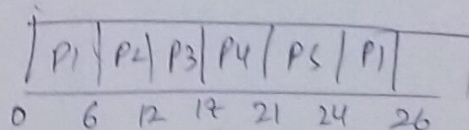 P1 P2 P3 P4 P5 P1
0 6 12 17 21 24 26